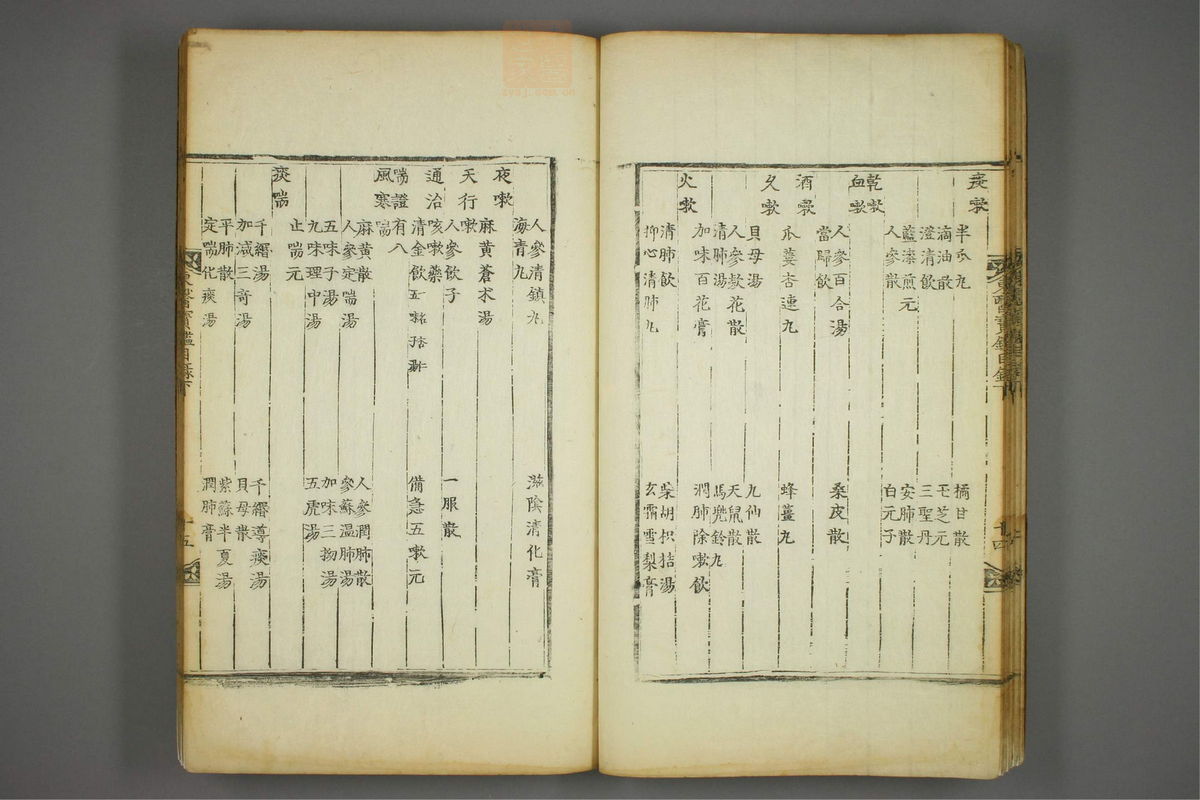 東醫寶鑑目錄下 十四
痰嗽
半瓜丸 橘甘散
滴油散 玉芝元
澄清飮 三聖丹
藍漆煎元 安肺散
人參散 白元子
乾嗽
血嗽
人參百合湯 桑皮散
當歸飮
酒嗽
瓜蔞杏連丸 蜂薑丸
久嗽
貝母湯 九仙散
人參款花散 天鼠散
清肺湯 馬兜鈴丸
火嗽
加味百花膏 潤肺除嗽飮
清肺飮 柴胡枳桔湯
抑心清肺丸 玄霜雪梨膏
人參清鎮丸 滋陰清化膏
海青丸
夜嗽
麻黃蒼朮湯
天行嗽
人參飮子 一服散
通治咳嗽藥
清金飮 備急五嗽元
喘證有八
風寒喘
麻黃散 人參潤肺散
人參定喘湯 參蘇溫肺湯
五味子湯 加味三拗湯
九味理中湯 五虎湯
止喘元
痰喘
千緡湯 千緡導痰湯
加減三奇湯 貝母散
平肺散 紫蘇半夏湯
定喘化痰湯 潤肺膏
東醫寶鑑目錄下 十五